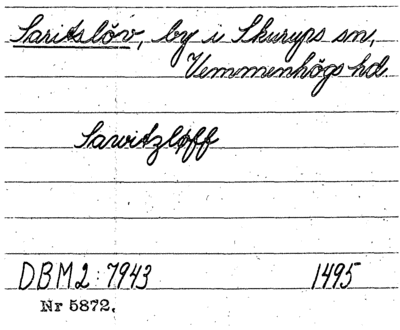 Saritslöv, by i Skurups sn,
Vemmenhögs hd.
Sawitzløff
DBM2:7943 1495
Nr 5872.